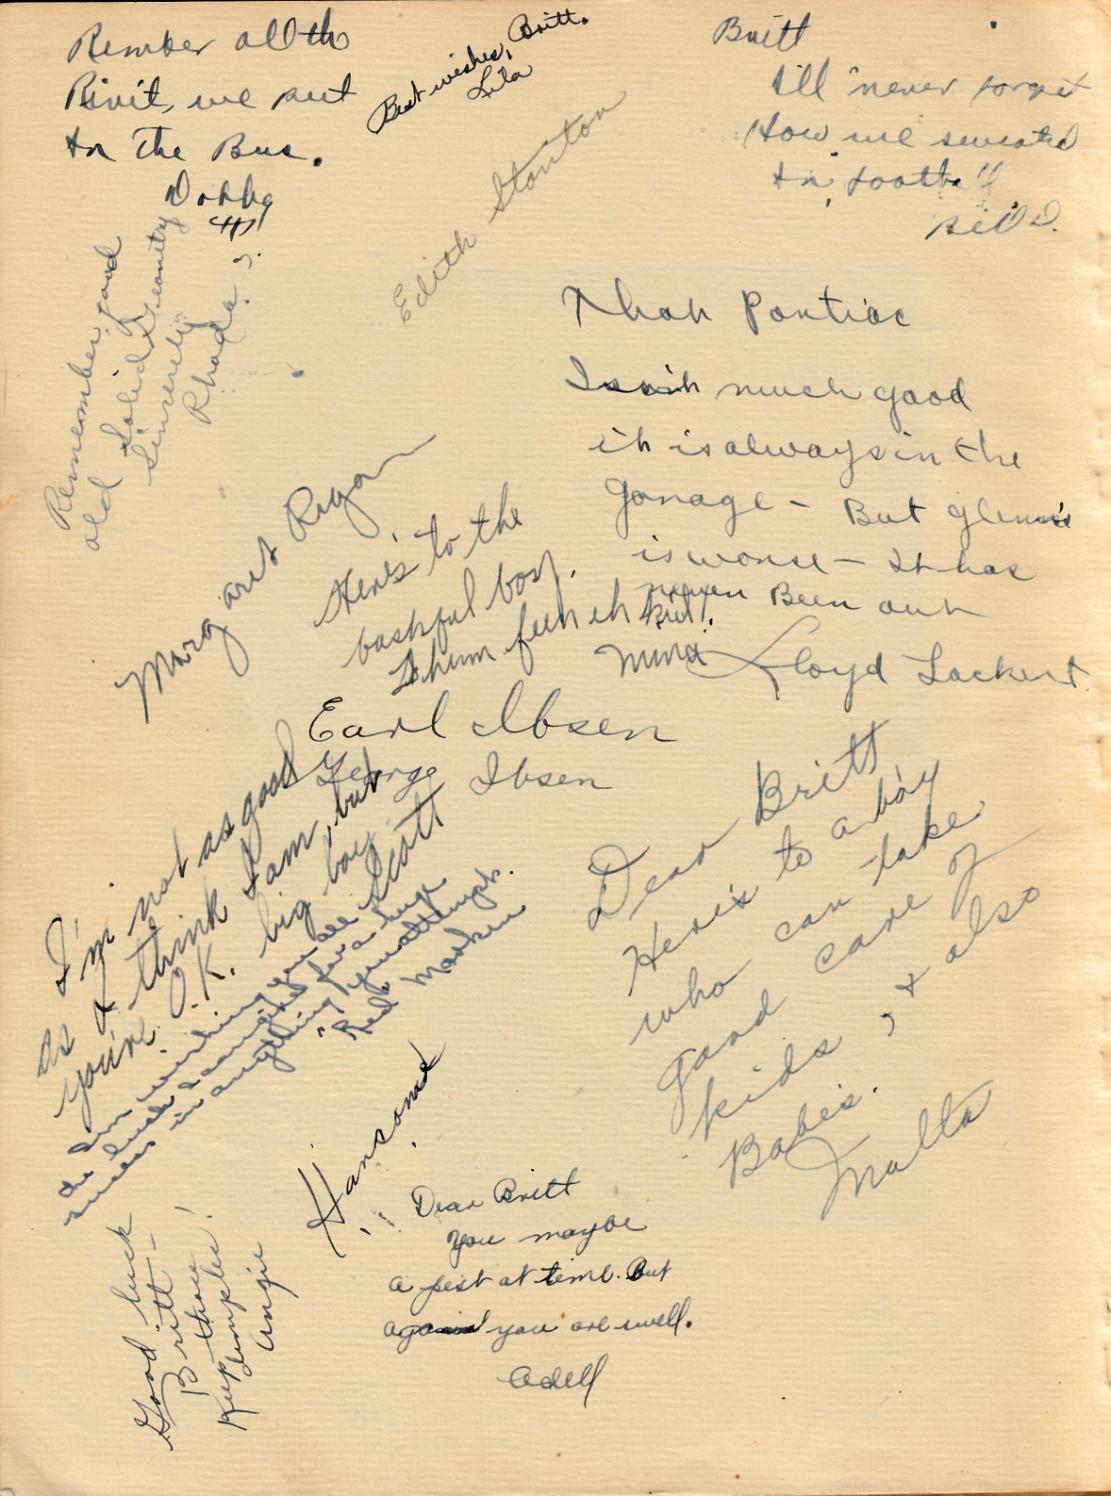 Rember all th
Rivit, we put
In The Bus.
Best wishes, Britt.
Lila
Britt
Ill never forget
How we sweated
In football
Bill D.
Edith Stanton
Remember good
old Solid Geometry
Sincerely
Rhoda
That Pontiac
Isnt much good
it is always in the
Garage – But Glenn's
is worse – It has
never Been out
Lloyd Lockert
Margaret Ryan
Here's to the
bashful boy.
Mina
Earl Ibsen
George Ibsen
I'm not as good
as I think I am, but
you're O.K. big boy
Scott
Am wishing you all
the luck
success in anything you attempt.
"Red"
Dear Britt
Here's to a boy
who can take
good care of
kids, & also
Babes.
Malta
Hansome
Dear Britt
You maybe
a pest at time. But
again you are swell.
Adell
Good luck
Britt –
Keep those
dimples!
Angie